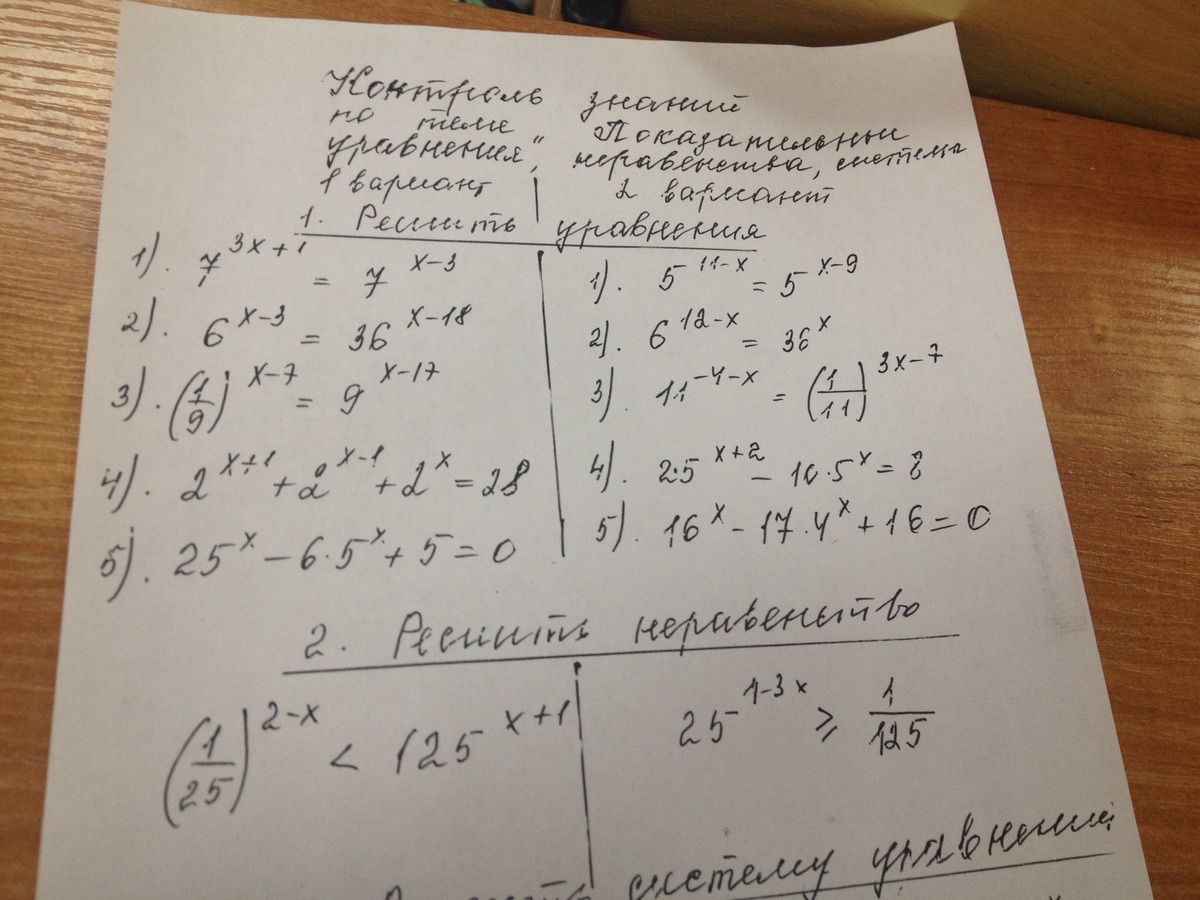 Контроль знаний
по теме „Показательные
уравнения", неравенства, системы
1 вариант 2 вариант
1. Решить уравнения
1). 7^{3x+1} = 7^{x-3}
2). 6^{x-3} = 36^{x-18}
3). (1/9)^{x-7} = 9^{x-17}
4). 2^{x+1} + 2^{x-1} + 2^x = 28
5). 25^x - 6·5^x + 5 = 0
1). 5^{11-x} = 5^{x-9}
2). 6^{12-x} = 36^x
3). 11^{-4-x} = (1/11)^{3x-7}
4). 2·5^{x+2} - 10·5^x = 8
5). 16^x - 17·4^x + 16 = 0
2. Решить неравенство
(1/25)^{2-x} < 125^{x+1}
25^{1-3x} ⩾ 1/125
систему уравнений